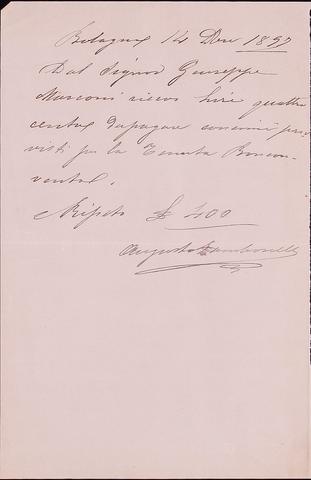 Bologna 14 Dec 1897
Dal Signor Giuseppe
Marconi ricevo Lire quattro
cento da pagare concimi pro
visti per la Tenuta Boscon
ventol.
Ripeto £ 400
Augusto